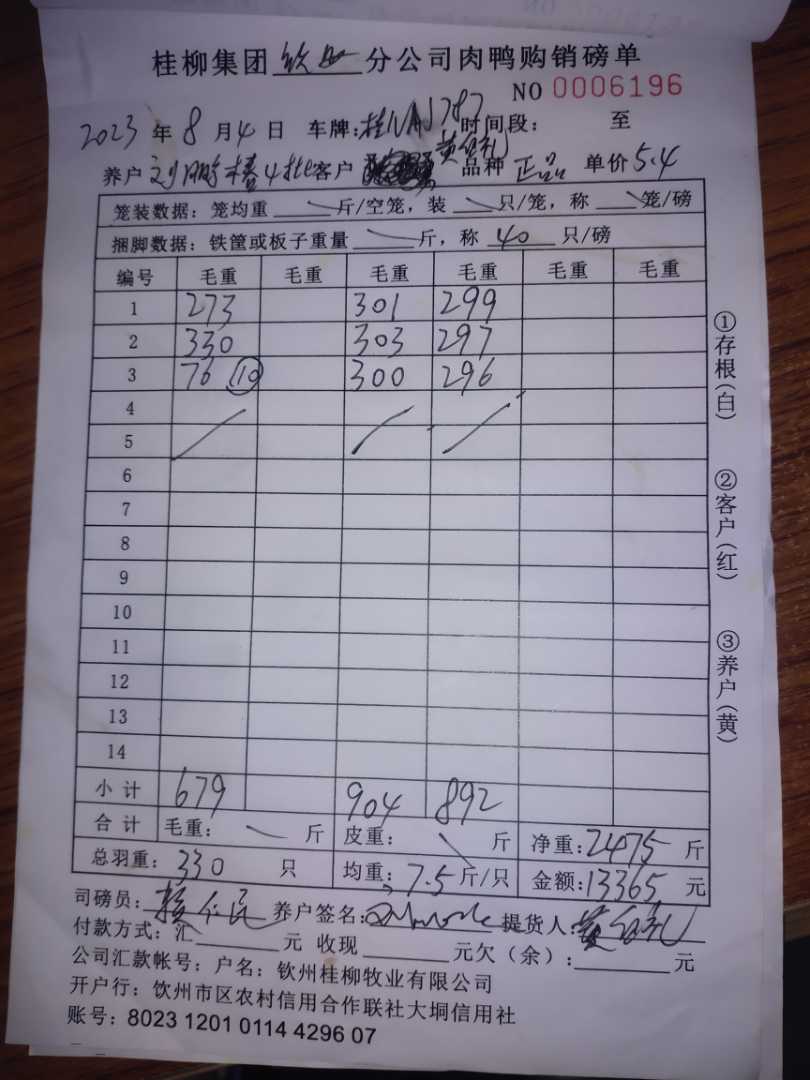 桂柳集团 钦州 分公司肉鸭购销磅单
NO 0006196
2023 年 8 月 4 日 车牌:桂NAJ787 时间段: 至
养户 刘鹏椿4批 客户 黄白礼 品种 正品 单价 5.4
笼装数据: 笼均重 斤/空笼, 装 只/笼, 称 笼/磅
捆脚数据: 铁筐或板子重量 斤, 称 40 只/磅
编号 毛重 毛重 毛重 毛重 毛重 毛重
1 273 301 299
2 330 303 297
3 76 ⑩ 300 296
4
5
6
7
8
9
10
11
12
13
14
小计 679 904 892
合计 毛重: 斤 皮重: 斤 净重: 2475 斤
总羽重: 330 只 均重: 7.5 斤/只 金额: 13365 元
司磅员: 养户签名: 提货人:
付款方式: 汇 元 收现 元欠(余): 元
公司汇款帐号: 户名: 钦州桂柳牧业有限公司
开户行: 饮州市区农村信用合作联社大垌信用社
账号: 8023 1201 0114 4296 07
①存根(白)
②客户(红)
③养户(黄)